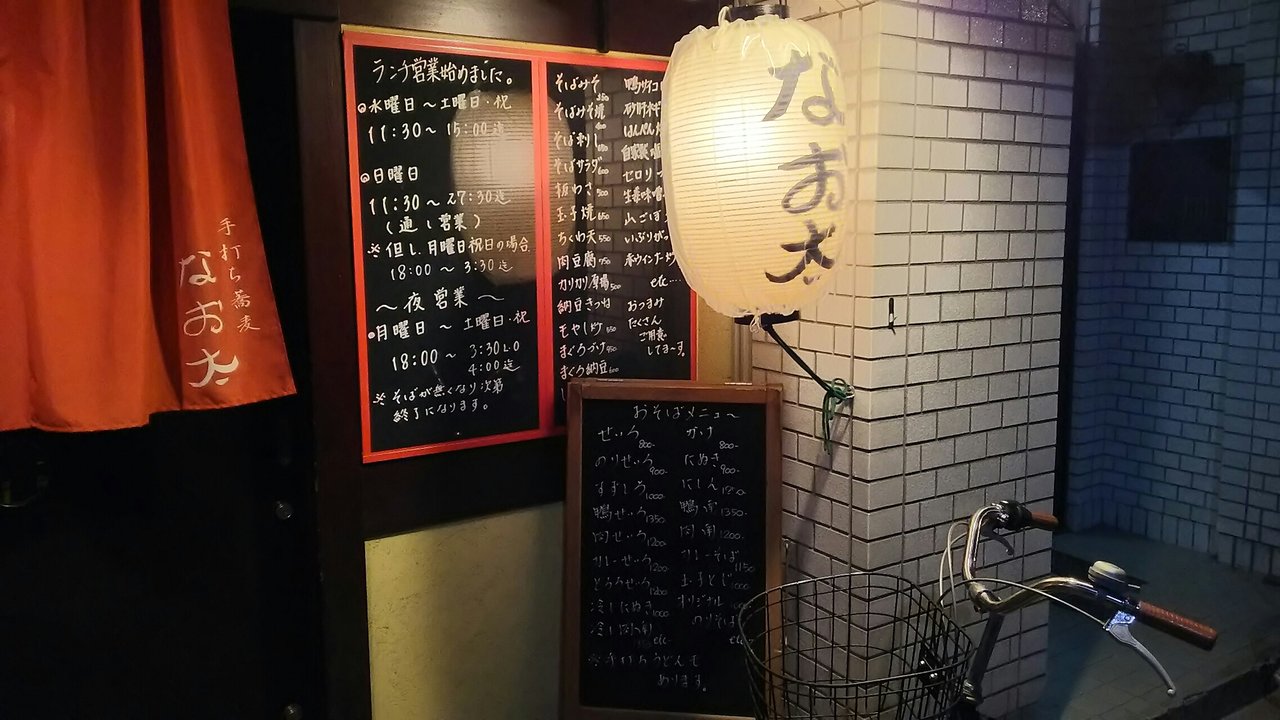 手打ち蕎麦
なお太
ランチ営業始めました。
◎水曜日〜土曜日・祝
11:30〜15:00迄
◎日曜日
11:30〜27:30迄
(通し営業)
※但し月曜日祝日の場合
18:00〜3:30迄
〜夜営業〜
◎月曜日〜土曜日・祝
18:00〜3:30L.O
4:00迄
※そばが無くなり次第
終了になります。
そばみそ
そばみそ焼
そば刺し
そばサラダ
板わさ 500
玉子焼 650
ちくわ天 550
肉豆腐 750
カリカリ 500
納豆きつね
もやし炒 550
まぐろづけ
まぐろ納豆 600
自家製
セロリ
生姜味噌
山ごぼう
いぶりがっ
etc....
おつまみ
たくさん
ご用意
してまーす。
なお太
おそばメニュー〜
せいろ 800-
のりせいろ 900-
1000-
鴨せいろ 1350
肉せいろ 1200-
カレーせいろ 1200
とろろせいろ 1200
冷したぬき 1000
etc
かけ 800-
たぬき 900-
にしん
鴨南 1350-
肉南 1200-
カレーそば 1150
玉子とじ 1000
オリジナル
のりそば
etc
※手打ちうどんも
あります。
なお太